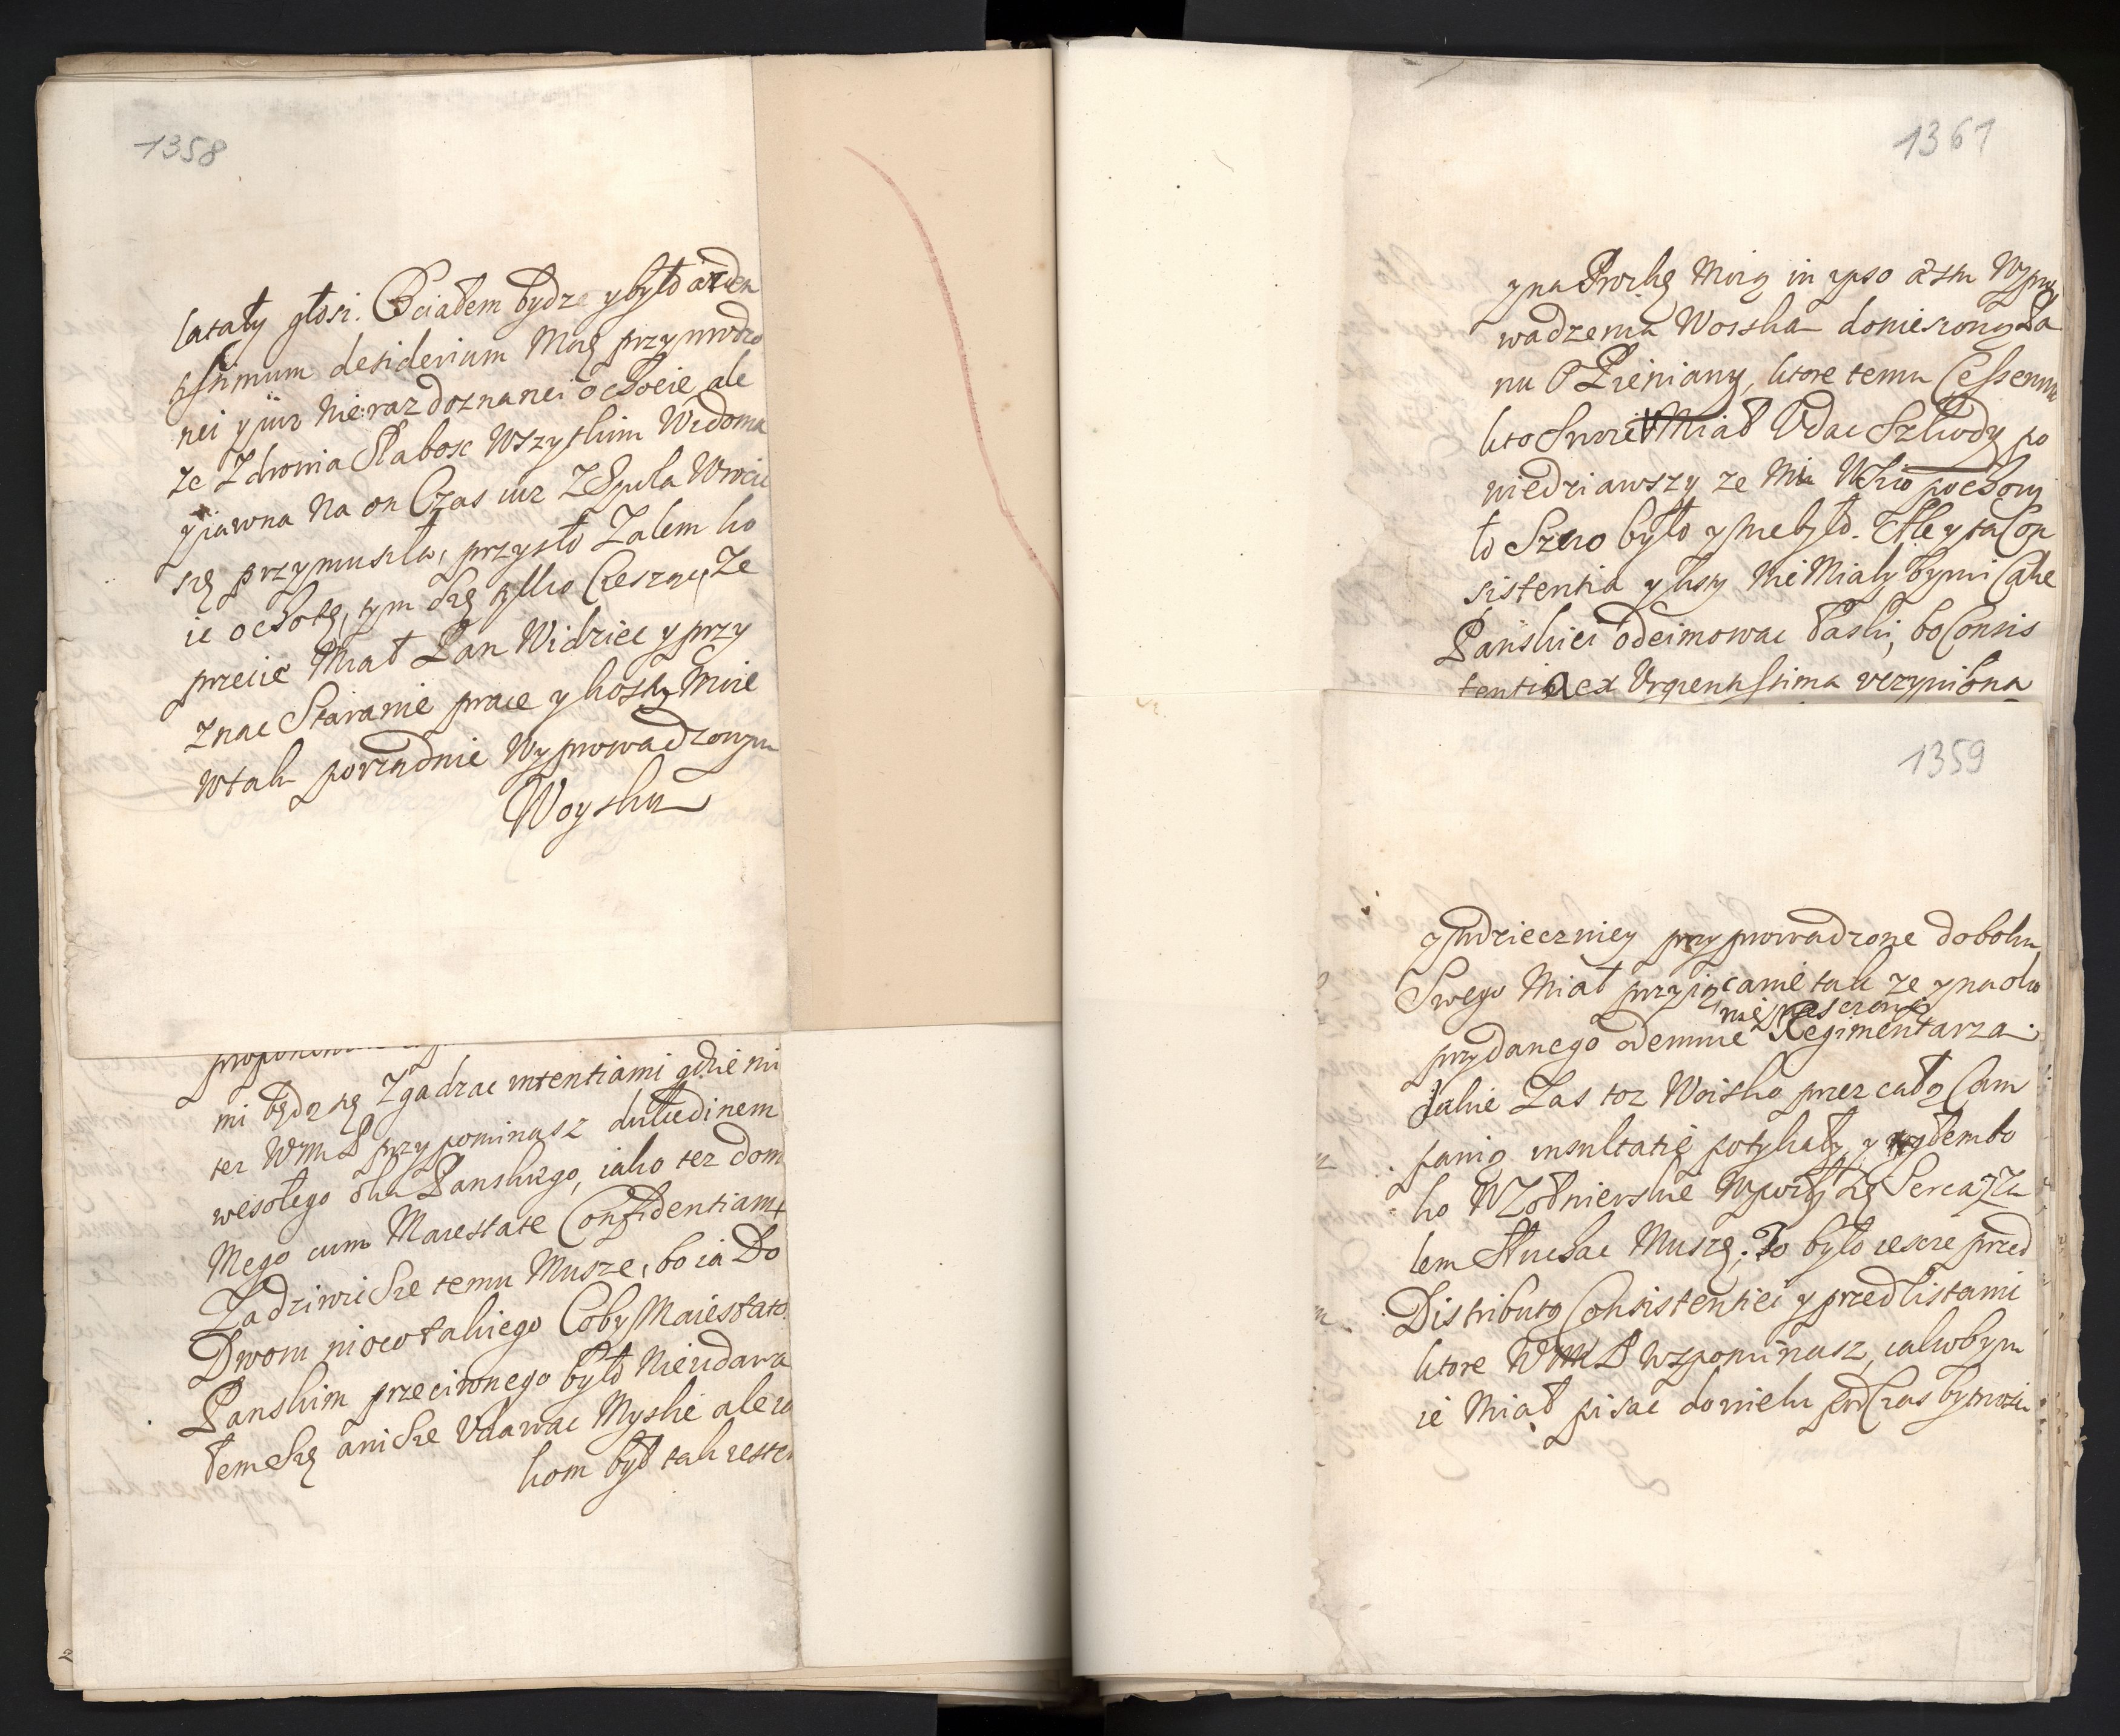 1358
latały głosi. Chciałem bydz y było arden
tissimum desiderium Moię przy wrodzo
nei y iuz nie raz doznanei ochocie, ale
ze Zdrowia Słabosc Wszystkim Wiadoma
y iawna Na on Czas iuz Z Opula Wrocic
się przymusiła, przyszło Zalem ko
ic ochotę, tym Się tylko Cieszący, Ze
przecie Miał Pan Widziec y przy
znac Staranie prace y koszty Moie
w tak porządnie Wyprowadzonym
Woysku
mi będą się Zgadzac intentiami gdzie mi
tez WMP przypominasz dulcedinem
wesołego oka Panskiego, iako tez dom
Mego cum Maiestate Confidentiam
Zadziwic Sie temu Musze, bo ia Do
Dworu nioco takiego Coby Maiestato
Panskim przeciwnego było Nie udawa
łem Się ani Sie Udawac Myslie ale
kom był tak iestem
1361
y na Prozbę Moię in ipso actu Wypro
wadzenia Woiska doniesiony Da
nu O Pieniany, ktore temu Cessenimo
kto Swoie Miał Udac Szkody po
wiedziawszy ze Mu Wsio pochony
to Szczo było y nebyło. Ale y ta Con
sistentia y listy nie Miały by mi Cale
Panskiei odeimowac łaski, bo Consis
tentia ex Urgentissima uczyniona
1359
y wdzieczniey przyprowadzone do boku
Swego Miał przyięcanie tak ze y na oko
nie pasczono
przydanego odemnie Regimentarza.
Jakie Zas toz Woisko przez całą Cam
panią insultatie potykały, y
ko W Zołnierskie Wpoiły się Serca, Za
lem Słuchac Muszę; To było iescie przed
Distributą Consistentiei y przed listami
ktore WMP wspominasz, iakobym
ie Miał pisac do wielu pod Czas bytnosci